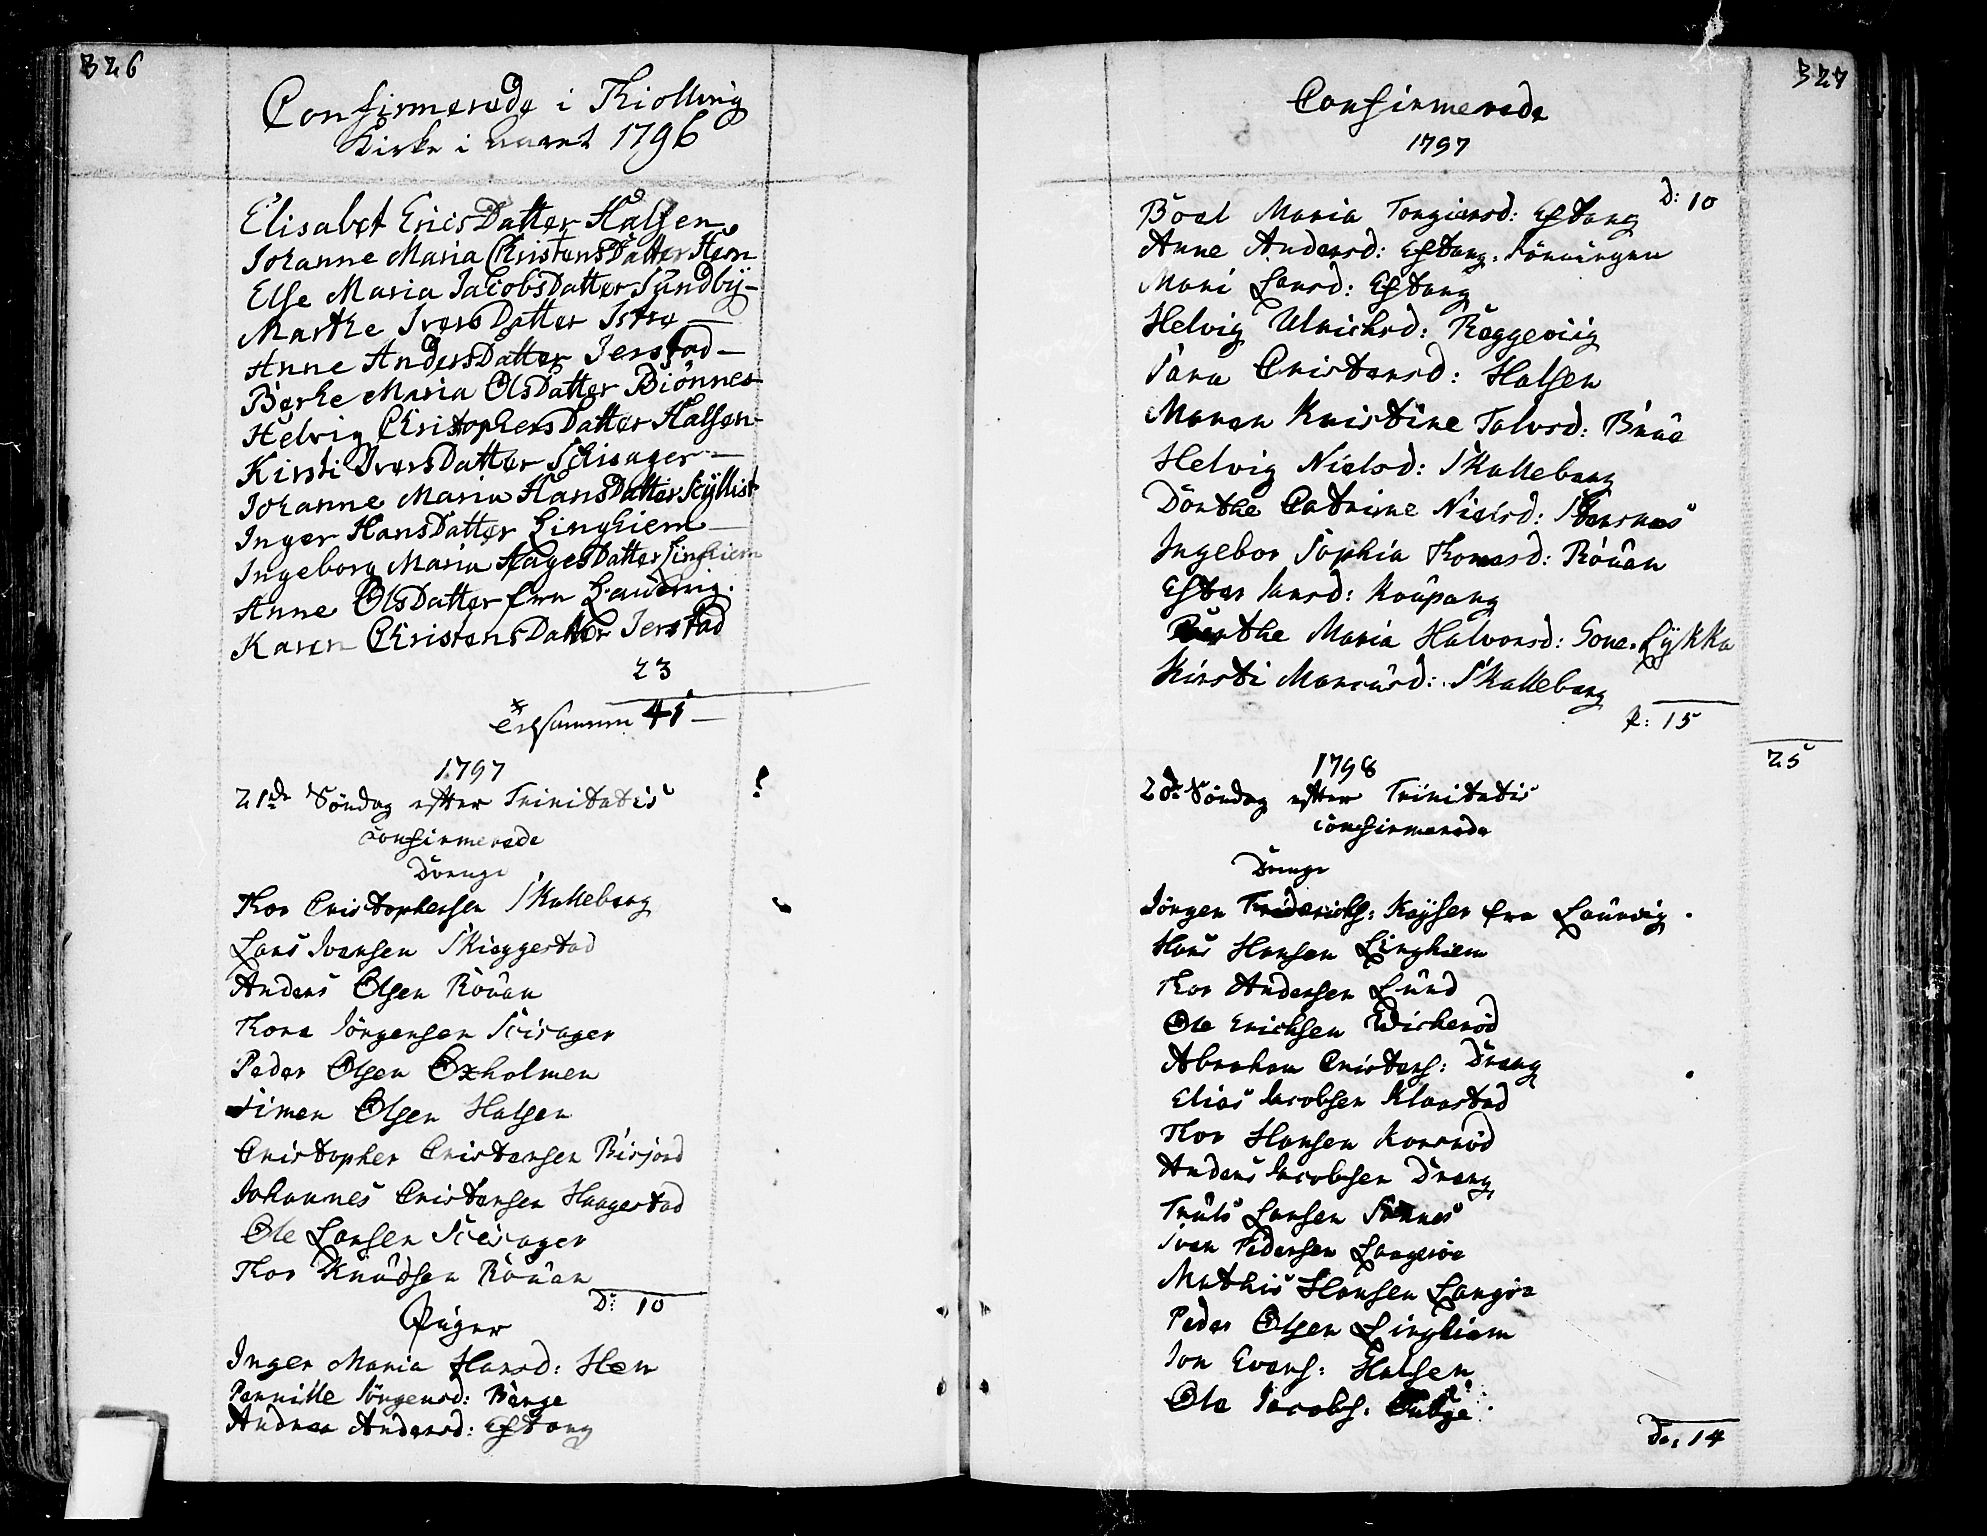 326
Confirmerede i Thiolling
Kirke i Aaret 1796
Elisabet EricsDatter Halsen
Johanne Maria ChristensDatter Hem
Else Maria JacobsDatter Sundby -
Marthe IversDatter Istre -
Anne AndersDatter Ierstad -
Berhe Maria OlsDatter Biönnes
Helvig ChristophersDatter Halsen -
Kirsti IversDatter Schisager -
Johanne Maria HansDatter
Inger HansDatter Linghiem -
Ingeborg Maria HagesDatter Linghiem
Anne OlsDatter fra Laurvig.
Karen ChristensDatter Ierstad
23
41 -
1797
21de Söndag efter Trinitatis
confirmerede
Drenge
Thor Cristophersen Skalleberg
Lars Iversen Skieggestad
Anders Olsen Röuen
Thore Iörgensen Scisager
Peder Olsen Oxholmen
Simen Olsen Halsen
Cristopher Cristensen Risjord
Johannes Cristensen Haagestad
Ole Larsen Scisager
Thor Knudsen Röuen
D: 10
Piger
Inger Maria Hansd: Hem
Pernille Iörgensd: Berge
Andrea Andersd: Eftang
327
Confirmerede
1797
D: 10
Boel Maria Torgiersd: Eftang
Anne Andersd: Eftang.
Mari Larsd: Eftang
Helvig Ulrichsd: Roggeviig
Sara Cristensd: Halsen
Maren Kristine Talvsd: Brue
Helvig Nielsd: Skalleberg
Dorthe Catrine Nielsd:
Ingebor Sophia Thomesd: Röuen
Ester Iansd: Kaupang
Berthe Maria Halvorsd: Gone-Lykka
Kirsti Marcusd: Skalleberg
P: 15
25
1798
20de Söndag efter Trinitatis
confirmerede
Drenge
Jörgen Friderichs: Kayser fra Laurvig.
Hans Hansen Linghiem
Thor Andersen Lund
Ole Erichsen Wicheröd
Abraham Cristens: Dreng
Elias Iacobsen Klaastad
Thor Hansen Korsröd
Anders Iacobsen Dreng
Truls Larsen Sannes
Iver Pedersen Langeröe
Mathis Hansen Langöe
Peder Olsen Linghiem
Ion Evens: Halsen
Ole Iacobs:
Dr: 14